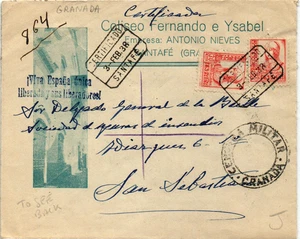 GRANADA
Certificado
864
Coliseo Fernando e Ysabel
Empresa: ANTONIO NIEVES
SANTAFÉ (GRA
CERTIFICADO
3 FEB 38
SANTAFÉ
¡Viva España única
liberada y sus liberadores!
Sr Delegado General de la
Sociedad de
6
San Sebastián
CENSURA MILITAR
GRANADA
To SEE
BACK
J